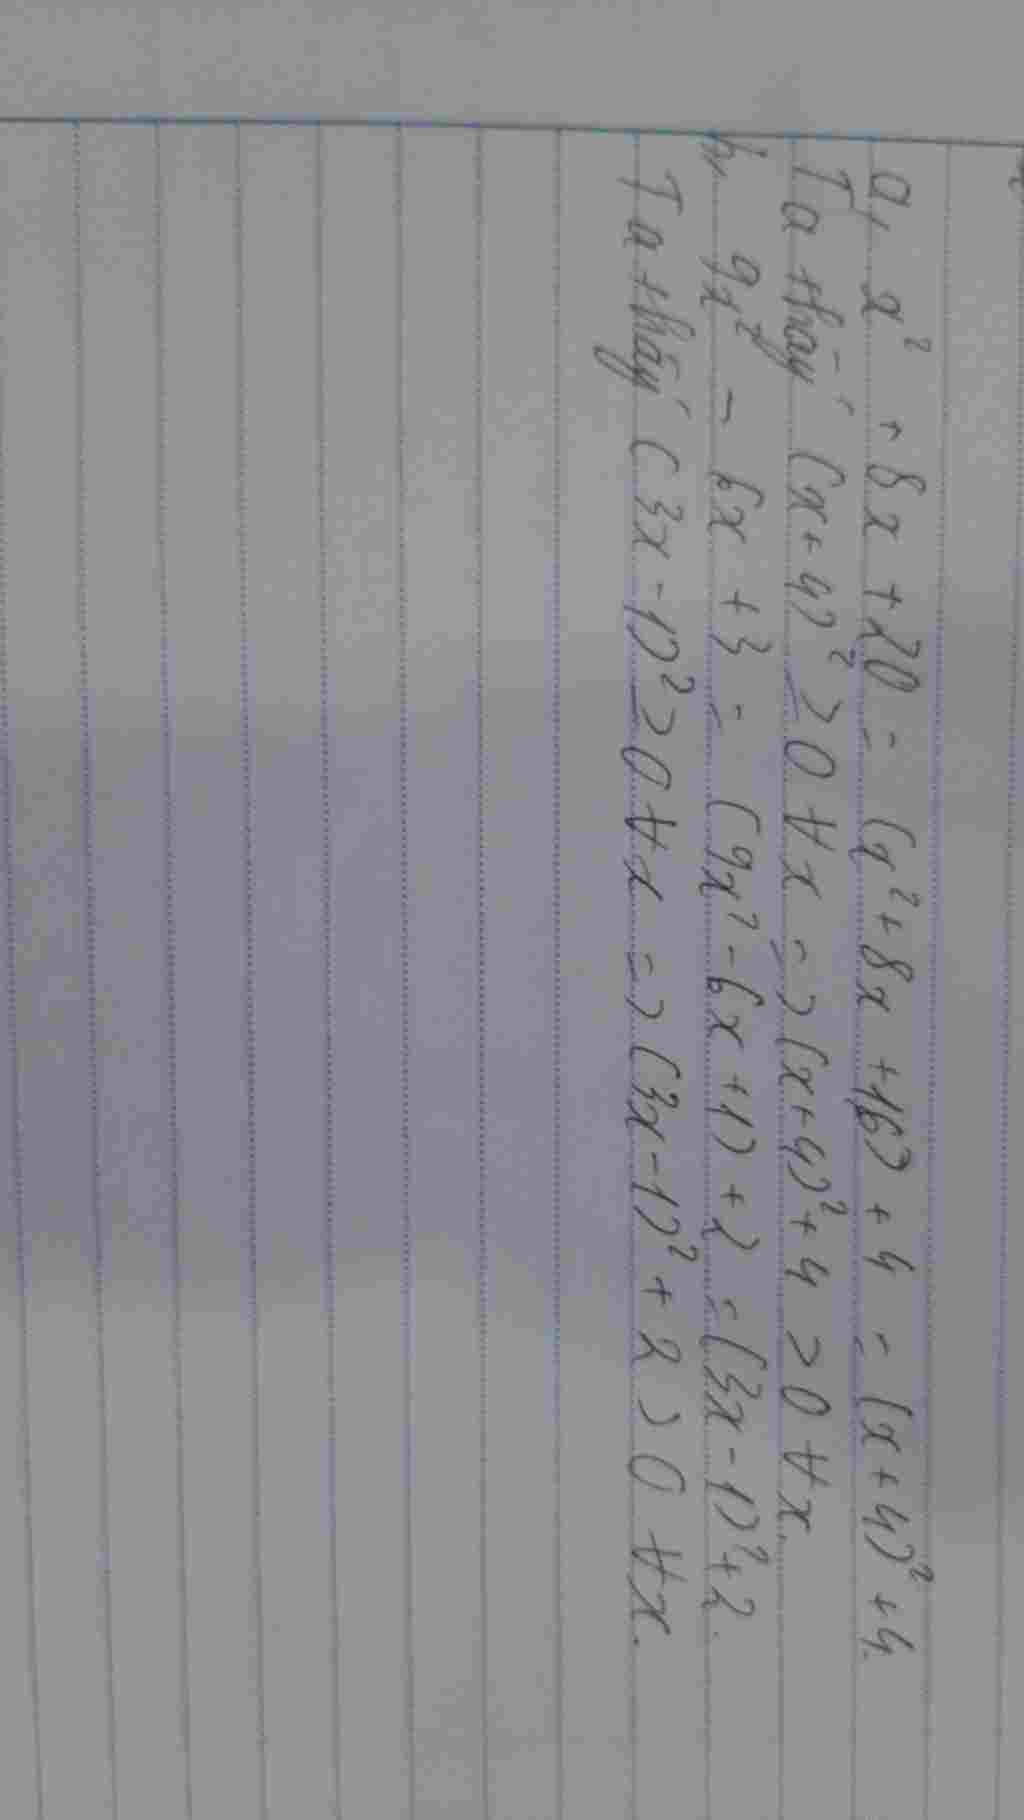 a, x² + 8x + 20 = (x² + 8x + 16) + 4 = (x + 4)² + 4.
Ta thấy (x + 4)² ≥ 0 ∀x => (x + 4)² + 4 > 0 ∀x.
b, 9x² - 6x + 3 = (9x² - 6x + 1) + 2 = (3x - 1)² + 2.
Ta thấy (3x - 1)² ≥ 0 ∀x => (3x - 1)² + 2 > 0 ∀x.